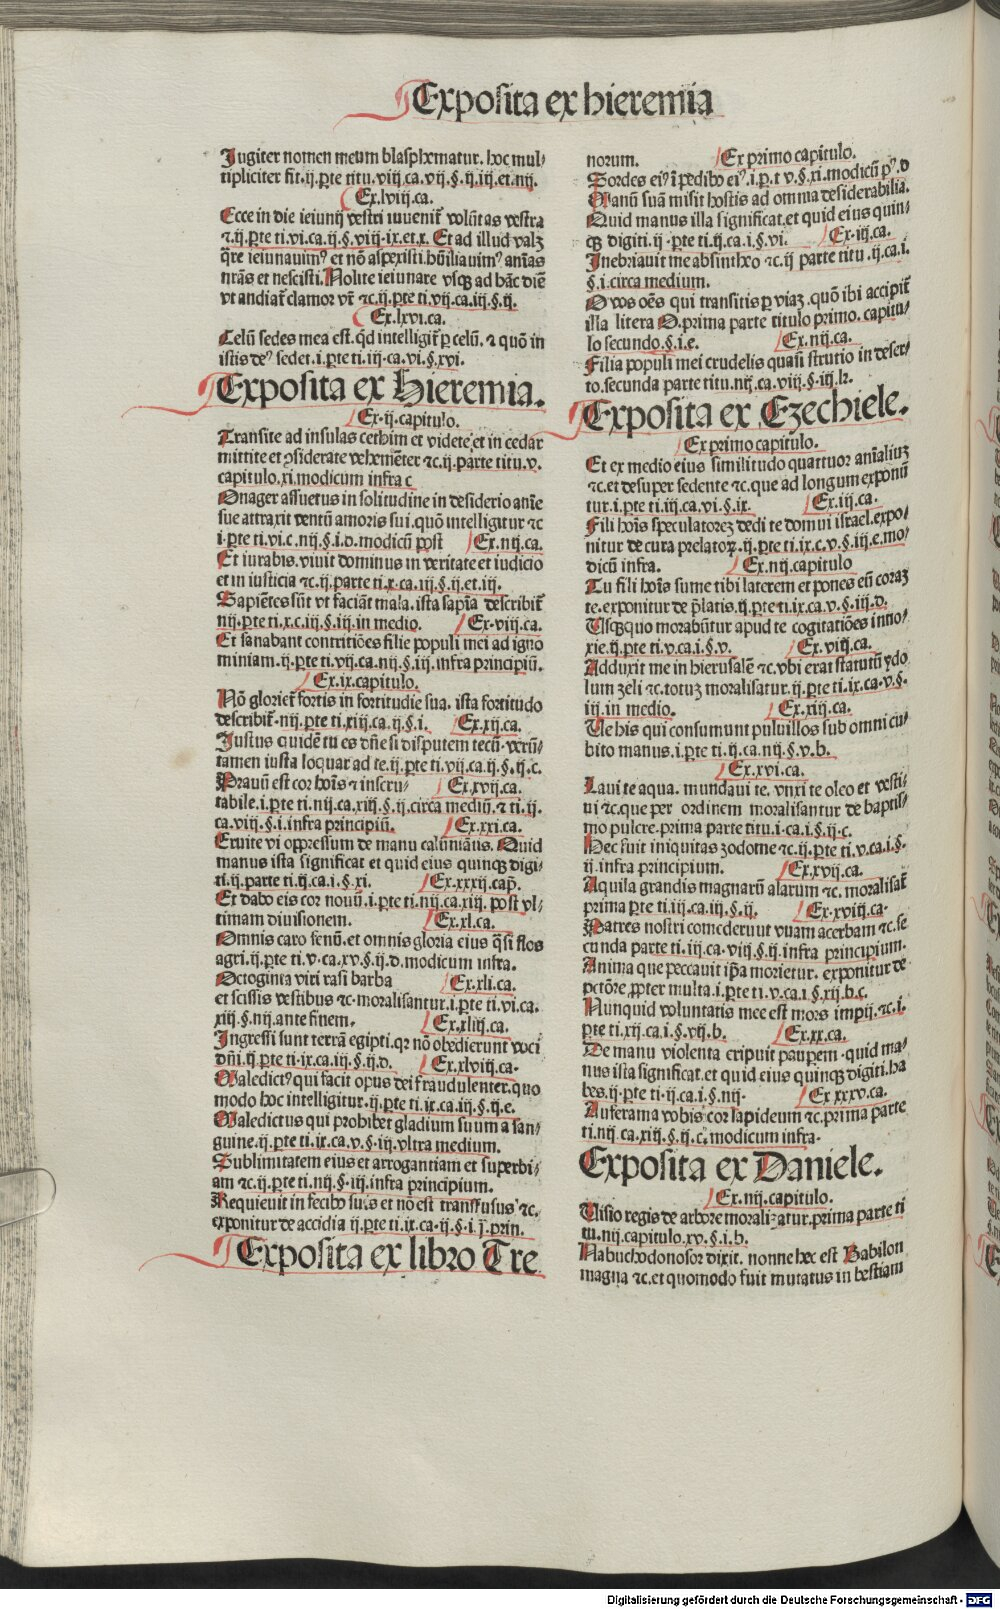 Exposita ex hieremia
Iugiter nomen meum blasphematur. hoc mul-
tipliciter fit. ij. pte titu. viij. ca. vij. §. ij. iij. et. iiij.
Ex. lviij. ca.
Ecce in die ieiunij vestri iuuenit̄ volūtas vestra
⁊. ij. pte ti. vi. ca. ij. §. viij. ix. et. x. Et ad illud valꝫ
q̄re ieiunauimꝰ et nō aspexisti. hūiliauimꝰ aīas
nrās et nescisti. Nolite ieiunare vsqꝫ ad hāc diē
vt audiat̄ clamor vr̄ ⁊c. ij. pte ti. vij. ca. iij. §. ij.
Ex. lxvi. ca.
Celū sedes mea est. qd intelligit̄ ꝑ celū. ⁊ quō in
istis deꝰ sedet. i. pte ti. iij. ca. vi. §. xvi.
Exposita ex Hieremia.
Ex. ij. capitulo.
Transite ad insulas cethim et videte et in cedar
mittite et ꝯsiderate vehemēter ⁊c. ij. parte titu. v.
capitulo. xi. modicum infra c
Onager assuetus in solitudine in desiderio anīe
sue attraxit ventū amoris sui. quō intelligitur ⁊c
i. pte ti. vi. c. iiij. §. i. d. modicū post Ex. iiij. ca.
Et iurabis. viuit dominus in veritate et iudicio
et in iusticia ⁊c. ij. parte ti. x. ca. iij. §. ij. et. iij.
Sapiētes sūt vt faciāt mala. ista sapīa describit̄
iiij. pte ti. x. c. iij. §. iij. in medio. Ex. viij. ca.
Et sanabant contritiōes filie populi mei ad igno
miniam. ij. pte ti. vij. ca. iiij. §. iij. infra principiū.
Ex. ix. capitulo.
Nō gloriet̄ fortis in fortitudīe sua. ista fortitudo
describit̄. iiij. pte ti. xiij. ca. ij. §. i. Ex. xij. ca.
Iustus quidē tu es dn̄e si disputem tecū. verū-
tamen iusta loquar ad te. ij. pte ti. vij. ca. ij. §. ij. c.
Prauū est cor hoīs ⁊ inscru- Ex. xvij. ca.
tabile. i. pte ti. iiij. ca. xiij. §. ij. circa mediū. ⁊ ti. ij.
ca. viij. §. i. infra principiū. Ex. xxi. ca.
Eruite vi oppressum de manu calūniātis. Quid
manus ista significat et quid eius quinqꝫ digi-
ti. ij. parte ti. ij. ca. i. §. xi. Ex. xxxij. cap̄.
Et dabo eis cor nouū. i. pte ti. iiij. ca. xiij. post vl-
timam diuisionem. Ex. xl. ca.
Omnis caro fenū. et omnis gloria eius q̄si flos
agri. ij. pte ti. v. ca. xv. §. ij. d. modicum infra.
Octoginta viri rasi barba Ex. xli. ca.
et scissis vestibus ⁊c. moralisantur. i. pte ti. vi. ca.
xiij. §. iiij. ante finem. Ex. xliij. ca.
Ingressi sunt terrā egipti. qꝛ nō obedierunt voci
dn̄i. ij. pte ti. ix. ca. iij. §. ij. d. Ex. xlviij. ca.
Maledictꝰ qui facit opus dei fraudulenter. quo
modo hoc intelligitur. ij. pte ti. ix. ca. iij. §. ij. e.
Maledictus qui prohibet gladium suum a san-
guine. ij. pte ti. ix. ca. v. §. iij. vltra medium.
Sublimitatem eius et arrogantiam et superbi-
am ⁊c. ij. pte ti. iiij. §. iij. infra principium.
Requieuit in fecibꝰ suis et nō est transfusus ⁊c.
exponitur de accidia ij. pte ti. ix. ca. ij. §. i. j. prin.
Exposita ex libro Tre
norum. Ex primo capitulo.
Sordes eiꝰ ī pedibꝰ eiꝰ. i. p. t v. §. xi. modicū pꝰ. d
Manū suā misit hostis ad omnia desiderabilia.
Quid manus illa significat. et quid eius quin-
qꝫ digiti. ij. pte ti. ij. ca. i. §. vi. Ex. iij. ca.
Inebriauit me absintheo ⁊c. ij parte titu. ij. ca. i.
§. i. circa medium.
O vos oēs qui transitis ꝑ viaꝫ. quō ibi accipit̄
illa litera O. prima parte titulo primo. capitu-
lo secundo. §. i. e. Ex. iiij. ca.
Filia populi mei crudelis quasi strutio in deser-
to. secunda parte titu. iiij. ca. viij. §. iij. k.
Exposita ex Ezechiele.
Ex primo capitulo.
Et ex medio eius similitudo quattuor anīaliuꝫ
⁊c. et desuper sedente ⁊c. que ad longum exponū
tur. i. pte ti. iij. ca. vi. §. ix. Ex. iij. ca.
Fili hoīs speculatoreꝫ dedi te domui israel. expo-
nitur de cura prelatoꝝ. ij. pte ti. ix. c. v. §. iij. e. mo-
dicū infra. Ex. iiij. capitulo
Tu fili hoīs sume tibi laterem et pones eū coraꝫ
te. exponitur de p̄latis. ij. pte ti. ix. ca. v. §. iij. d.
Vsqꝫquo morabūtur apud te cogitatiōes inno-
xie. ij. pte ti. v. ca. i. §. v. Ex. viij. ca.
Adduxit me in hierusalē ⁊c. vbi erat statutū ydo
lum zeli ⁊c. totuꝫ moralisatur. ij. pte ti. ix. ca. v. §.
iij. in medio. Ex. xiij. ca.
Ve his qui consumunt puluillos sub omni cu-
bito manus. i. pte ti. ij. ca. iiij. §. v. b.
Ex. xvi. ca.
Laui te aqua. mundaui te. vnxi te oleo et vesti-
ui ⁊c. que per ordinem moralisantur de baptis-
mo pulcre. prima parte titu. i. ca. i. §. ij. c.
Hec fuit iniquitas zodome ⁊c. ij. pte ti. v. ca. i. §.
ij. infra principium. Ex. xvij. ca.
Aquila grandis magnarū alarum ⁊c. moralisat̄
prima pte ti. iij. ca. iij. §. ij. Ex. xviij. ca.
Patres nostri comederunt vuam acerbam ⁊c. se
cunda parte ti. iij. ca. viij. §. ij. infra principium.
Anima que peccauit ip̄a morietur. exponitur de
pctōre ꝓpter multa. i. pte ti. v. ca. i §. xij. b. c.
Nunquid voluntatis mee est mors impij. ⁊c. i.
pte ti. xij. ca. i. §. vij. b. Ex. xx. ca.
De manu violenta eripuit paupem. quid ma-
nus ista significat. et quid eius quinqꝫ digiti. ha
bes. ij. pte ti. ij. ca. i. §. iiij. Ex xxxv. ca.
Auferam vobis cor lapideum ⁊c. prima parte
ti. iiij. ca. xiij. §. ij. c. modicum infra.
Exposita ex Daniele.
Ex. iiij. capitulo.
Visio regis de arbore moralizatur. prima parte ti
tu. iiij. capitulo. xv. §. i. b.
Nabuchodonosor dixit. nonne hec est Babilon
magna ⁊c. et quomodo fuit mutatus in bestiam
Digitalisierung gefördert durch die Deutsche Forschungsgemeinschaft - DFG